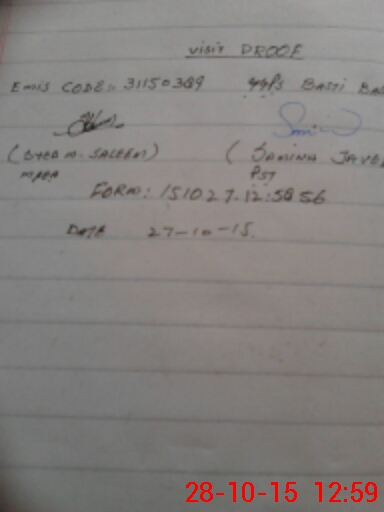 VISIT PROOF
EMIS CODE:- 31150389 GGPS BASTI BA
(SYED M. SALEEM) (SAMINA JAVE
MPEA PST
FORM: 151027-12:58 56
DATE 27-10-15.
28-10-15 12:59